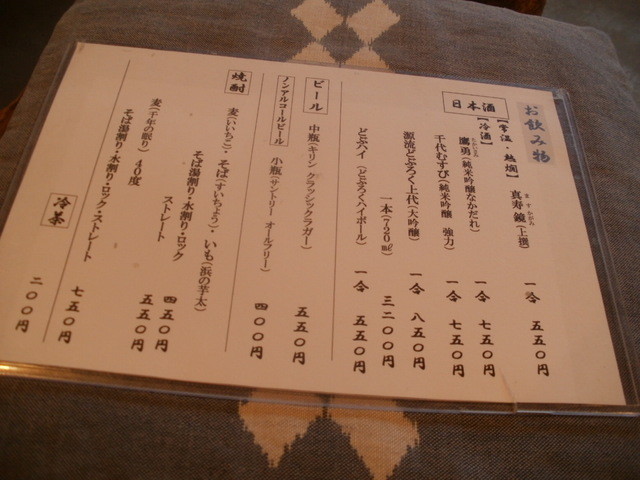 お飲み物
日本酒
【常温・熱燗】
真寿鏡(上撰) 一合 五五〇円
【冷酒】
鷹勇(純米吟醸なかだれ) 一合 七五〇円
千代むすび(純米吟醸 強力) 一合 七五〇円
源流どぶろく上代(大吟醸) 一合 八五〇円
一本(720㎖) 三二〇〇円
どぶハイ(どぶろくハイボール) 一合 五五〇円
ビール
中瓶(キリン クラシックラガー) 五五〇円
ノンアルコールビール
小瓶(サントリー オールフリー) 四〇〇円
焼酎
麦(いいちこ)・そば(すいちょう)・いも(浜の芋太)
そば湯割り・水割り・ロック 五五〇円
ストレート 四五〇円
麦(千年の眠り) 40度
そば湯割り・水割り・ロック・ストレート 七五〇円
冷茶 二〇〇円